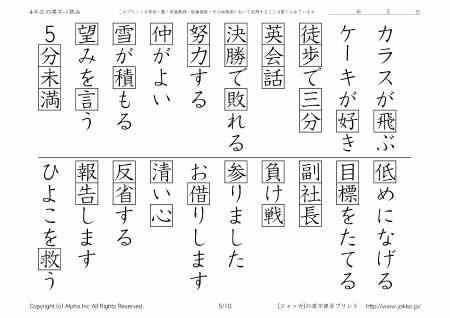 4年生の漢字-1 読み
このプリントを学校・塾・家庭教師・医療現場・その他指導において利用することは禁じられています
年 月 日
カラスが飛ぶ
ケーキが好き
徒歩で三分
英会話
決勝で敗れる
努力する
仲がよい
雪が積もる
望みを言う
5分未満
低めになげる
目標をたてる
副社長
負け戦
参りました
お借りします
清い心
反省する
報告します
ひよこを救う
Copyright (c) Alpha.Inc All Rights Reserved.
5/10
[ジャッカ]の漢字練習プリント http://www.jakka.jp/